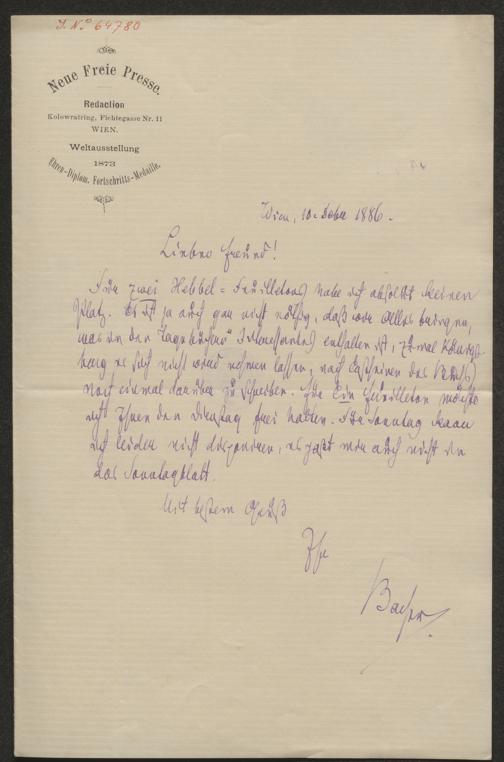 J. N.º 64780
Neue Freie Presse.
Redaction
Kolowratring, Fichtegasse Nr. 11
WIEN.
Weltausstellung
1873
Ehren-Diplom, Fortschritts-Medaille.
Wien, 10. 1886.
Lieber Freund!
Für zwei Hebbel-Feuilletons habe ich absolut keinen
Platz. Es ist ja auch gar nicht nöthig, daß wir Alles bringen,
was in den "Tagebüchern" Interessantes enthalten ist, zumal
es sich nicht wird nehmen lassen, nach Erscheinen des
noch einmal darüber zu schreiben. Für Ein Feuilleton möchte
ich Ihnen den Dienstag frei halten. Für Sonntag kann
ich leider nicht disponiren, es paßt mir auch nicht in
das Sonntagblatt.
Mit bestem Gruß
Ihr
Bacher